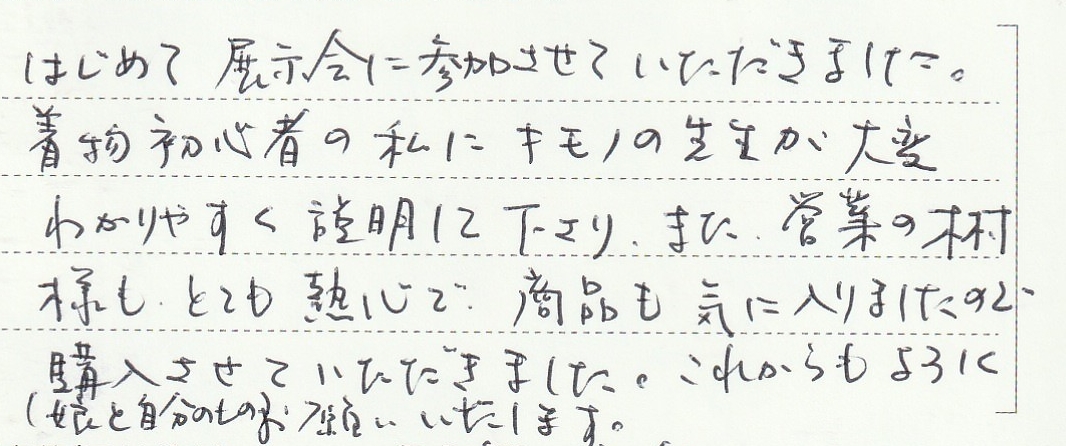 はじめて展示会に参加させていただきました。
着物初心者の私にキモノの先生が大変
わかりやすく説明して下さり、また、営業の木村
様も、とても熱心で、商品も気に入りましたので
購入させていただきました。これからもよろしく
(娘と自分のもの)お願いいたします。